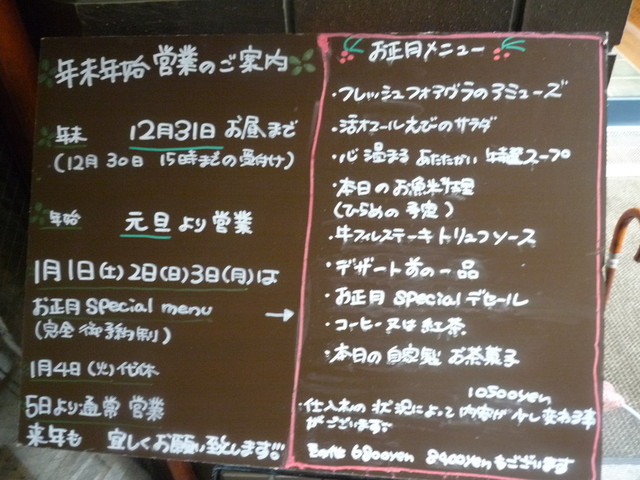 年末年始 営業のご案内
年末 12月31日 お昼まで
(12月30日 15時までの受付け)
年始 元旦より営業
1月1日(土)2日(日)3日(月)は
お正月 special menu
(完全御予約制)
1月4日(火)代休
5日より通常営業
来年も 宜しくお願い致します!!!
お正月メニュー
・フレッシュフォアグラのアミューズ
・活オマールえびのサラダ
・心温まる あたたかい 特製スープ
・本日のお魚料理
(ひらめの予定)
・牛フィレステーキトリュフソース
・デザート前の一品
・お正月 specialデセール
・コーヒー又は紅茶
・本日の自家製 お茶菓子
10500yen
・仕入れの状況によって内容が少し変わる事
がございます。
その他 6800yen 8400yenもございます